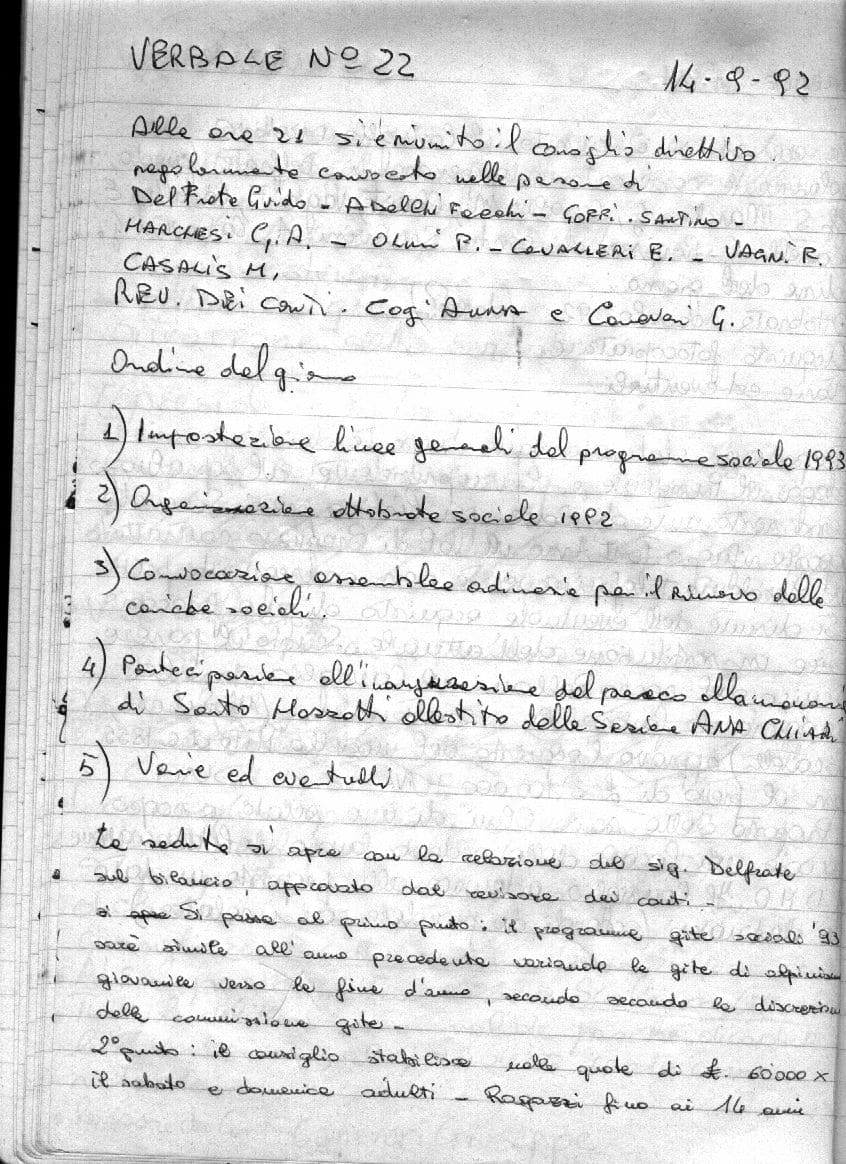 VERBALE Nº 22
14-9-92
Alle ore 21 si è riunito il consiglio direttivo
regolarmente convocato nelle persone di
Delfrate Guido - ADelchi Facchi - GOFFI. SANTINO -
MARCHESI G.A. - OLMI P. - CAVALLERI E. - VAGNI R.
CASALIS M.
REV. DEI CONTI. Cogi ANNA e Canevari G.
Ordine del giorno
1) Impostazione linee generali del programma sociale 1993
2) Organizzazione ottobrata sociale 1992
3) Convocazione assemblea ordinaria per il rinnovo delle
cariche sociali.
4) Partecipazione all'inaugurazione del parco alla memoria
di Santo Mazzotti allestito dalla Sezione ANA CHIARI
5) Varie ed eventuali
La seduta si apre con la relazione del sig. Delfrate
sul bilancio approvato dal revisore dei conti -
si apre Si passa al primo punto: il programma gite sociali '93
sarà simile all'anno precedente variando le gite di alpinismo
giovanile verso la fine d'anno, secondo secondo la discrezione
della commissione gite -
2° punto: il consiglio stabilisce nella quota di £. 60000 x
il sabato e domenica adulti - Ragazzi fino ai 14 anni